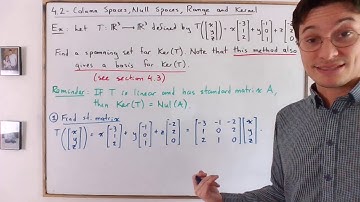 4.2 - Column Spaces, Null Spaces, Range and Kernel
Ex: Let T: ℝ³ → ℝ³ defined by T([x y z]) = x[-3 1 2] + y[-1 0 1] + z[-2 2 0]
Find a spanning set for Ker(T). Note that this method also
gives a basis for Ker(T).
(see section 4.3)
Reminder: If T is linear and has standard matrix A,
then Ker(T) = Nul(A).
① Find st. matrix
T([x y z]) = x[-3 1 2] + y[-1 0 1] + z[-2 2 0] = [-3 -1 -2; 1 0 2; 2 1 0][x y z].